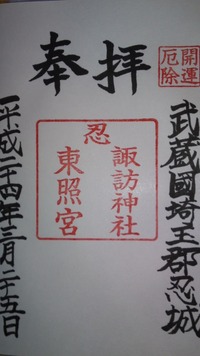 開運
厄除
奉拝
武蔵國埼玉郡忍城
忍
諏訪神社
東照宮
平成二十四年三月二十五日